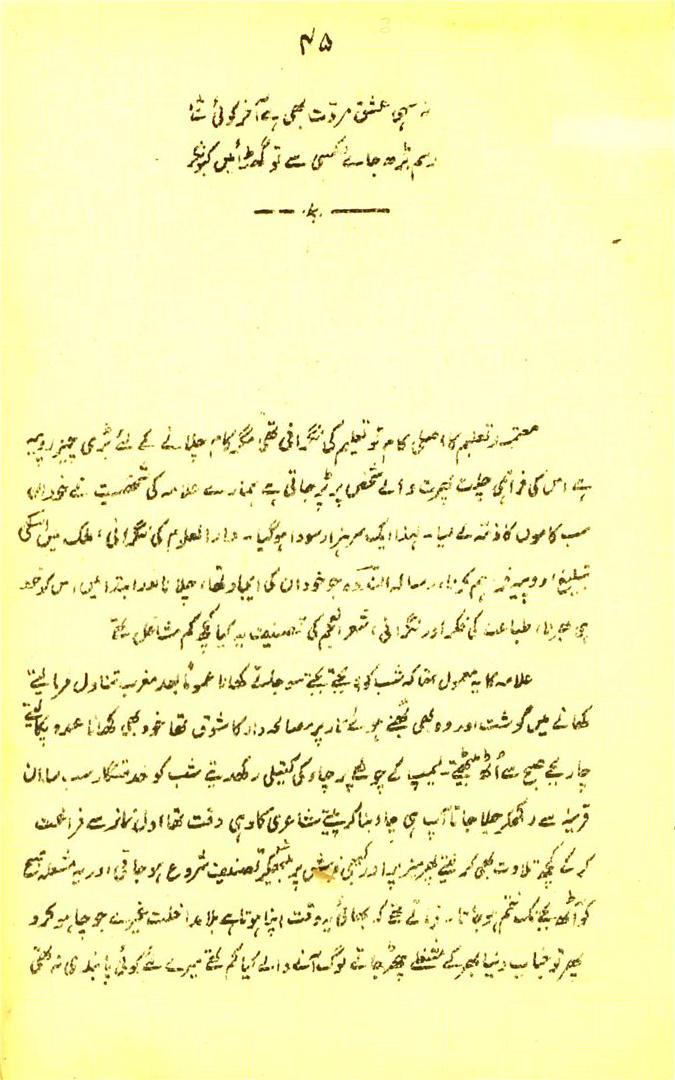 ۴۵
نہ سہی عشق مروّت بھی ہے آخر کوئی شے
رسم بڑھ جائے کسی سے تو گھٹائیں کیونکر
معتمد تعلیم کا اصلی کام تو تعلیم کی نگرانی تھی مگر کام چلانے کے لئے بڑی چیز روپیہ
ہے اس کی فراہمی چلت پھرت والے شخص پر پڑ جاتی ہے ہمارے علامہ کی شخصیت نے خود ان
سب کاموں کا ذمہ لے لیا۔ لہذا ایک سر ہزار سودا ہوگیا۔ دارالعلوم کی نگرانی، ملک میں اسکی
تبلیغ، روپیہ فراہم کرنا، رسالہ الندوہ جو خود ان کی ایجاد تھا، چلانا اور ابتدا میں، اس کو خود
ہی بھرنا، طباعت کی فکر اور نگرانی، شعر العجم کی تصنیف یہ کیا کچھ کم مشاغل تھے
علامہ کا یہ معمول تھا کہ شب کو بجتے بجتے سو جاتے کھانا عموماً بعد مغرب تناول فرما لیتے
کھانے میں گوشت اور وہ بھی بھنے ہوئے تار پر مصالحہ دار کا شوق تھا خود بھی کھانا عمدہ پکا لیتے
چار بجے صبح سے اُٹھ بیٹھتے۔ لیمپ کے چولھے پر چاء کی کیتلی رکھدیتے شب کو خدمتگار سب سامان
قرینہ سے رکھکر چلا جاتا آپ ہی چاء بنا کر پیتے شاعری کا وہی وقت تھا اول نماز سے فراغت
کر کے کچھ تلاوت بھی کر لیتے پھر میز پر اور کبھی فرش پر بیٹھکر تصنیف شروع ہو جاتی اور یہ مشغلہ صبح
کو آٹھ بجے تک ختم ہو جاتا۔ فرماتے تھے کہ بھائی یہ وقت اپنا ہوتا ہے بلا مداخلت غیرے جو چاہو کرو
پھر تو جناب دنیا بھر کے مشغلے چھڑ جاتے لوگ آنے والے کیا کم تھے میرے لئے کوئی پابندی نہ تھی